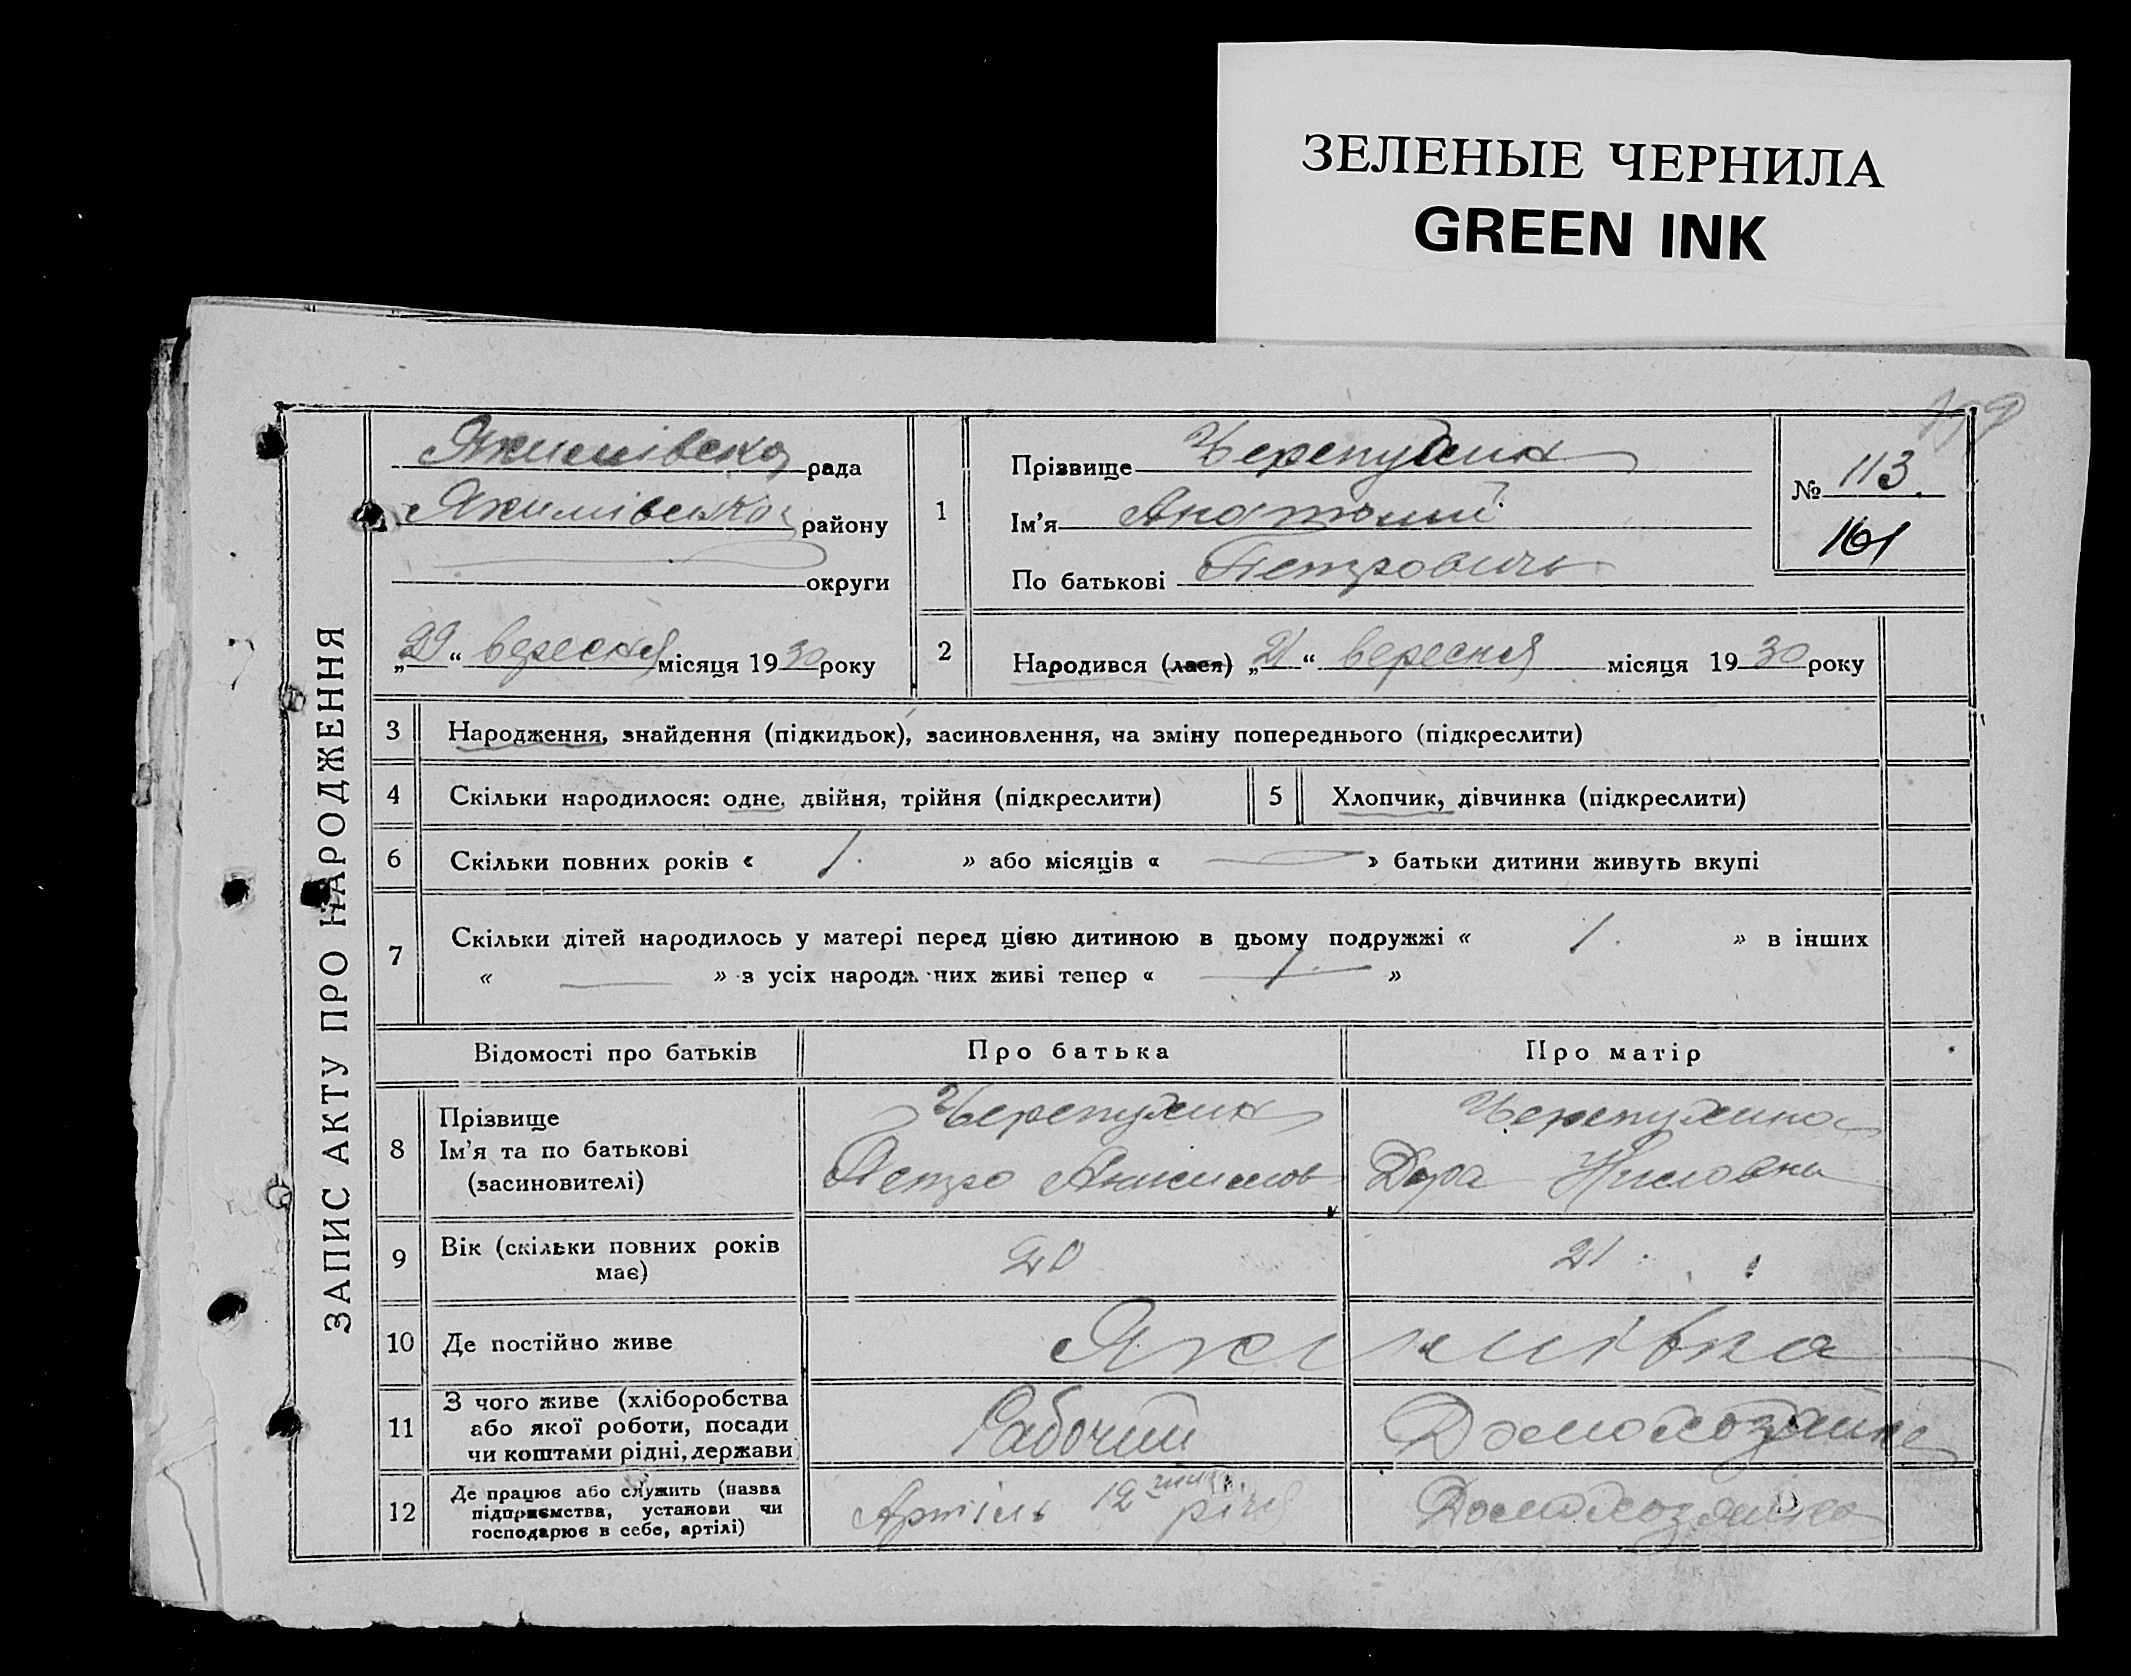 ЗЕЛЕНЫЕ ЧЕРНИЛА
GREEN INK
ЗАПИС АКТУ ПРО НАРОДЖЕННЯ
Якимівська рада
Якимівська району
округи
„29“ вересня місяця 1930 року
1
Прізвище
Ім'я Анатолий
По батькові Петрович
№ 113.
161
2
Народився (лася) „21“ вересня місяця 1930 року
3 Народження, знайдення (підкидьок), засиновлення, на зміну попереднього (підкреслити)
4 Скільки народилося: одне, двійня, трійня (підкреслити)
5 Хлопчик, дівчинка (підкреслити)
6 Скільки повних років « 1. » або місяців « — » батьки дитини живуть вкупі
7 Скільки дітей народилось у матері перед цією дитиною в цьому подружжі « 1. » в інших
« — » з усіх народж них живі тепер « 1. »
Відомості про батьків
Про батька
Про матір
8 Прізвище
Ім'я та по батькові
(засиновителі)
Петро
Дора
9 Вік (скільки повних років
має)
20
21
10 Де постійно живе
Якимівка
11 З чого живе (хліборобства
або якої роботи, посади
чи коштами рідні, держави
Рабочий
12 Де працює або служить (назва
підприємства, установи чи
господарює в себе, артілі)
Артіль 12 річя